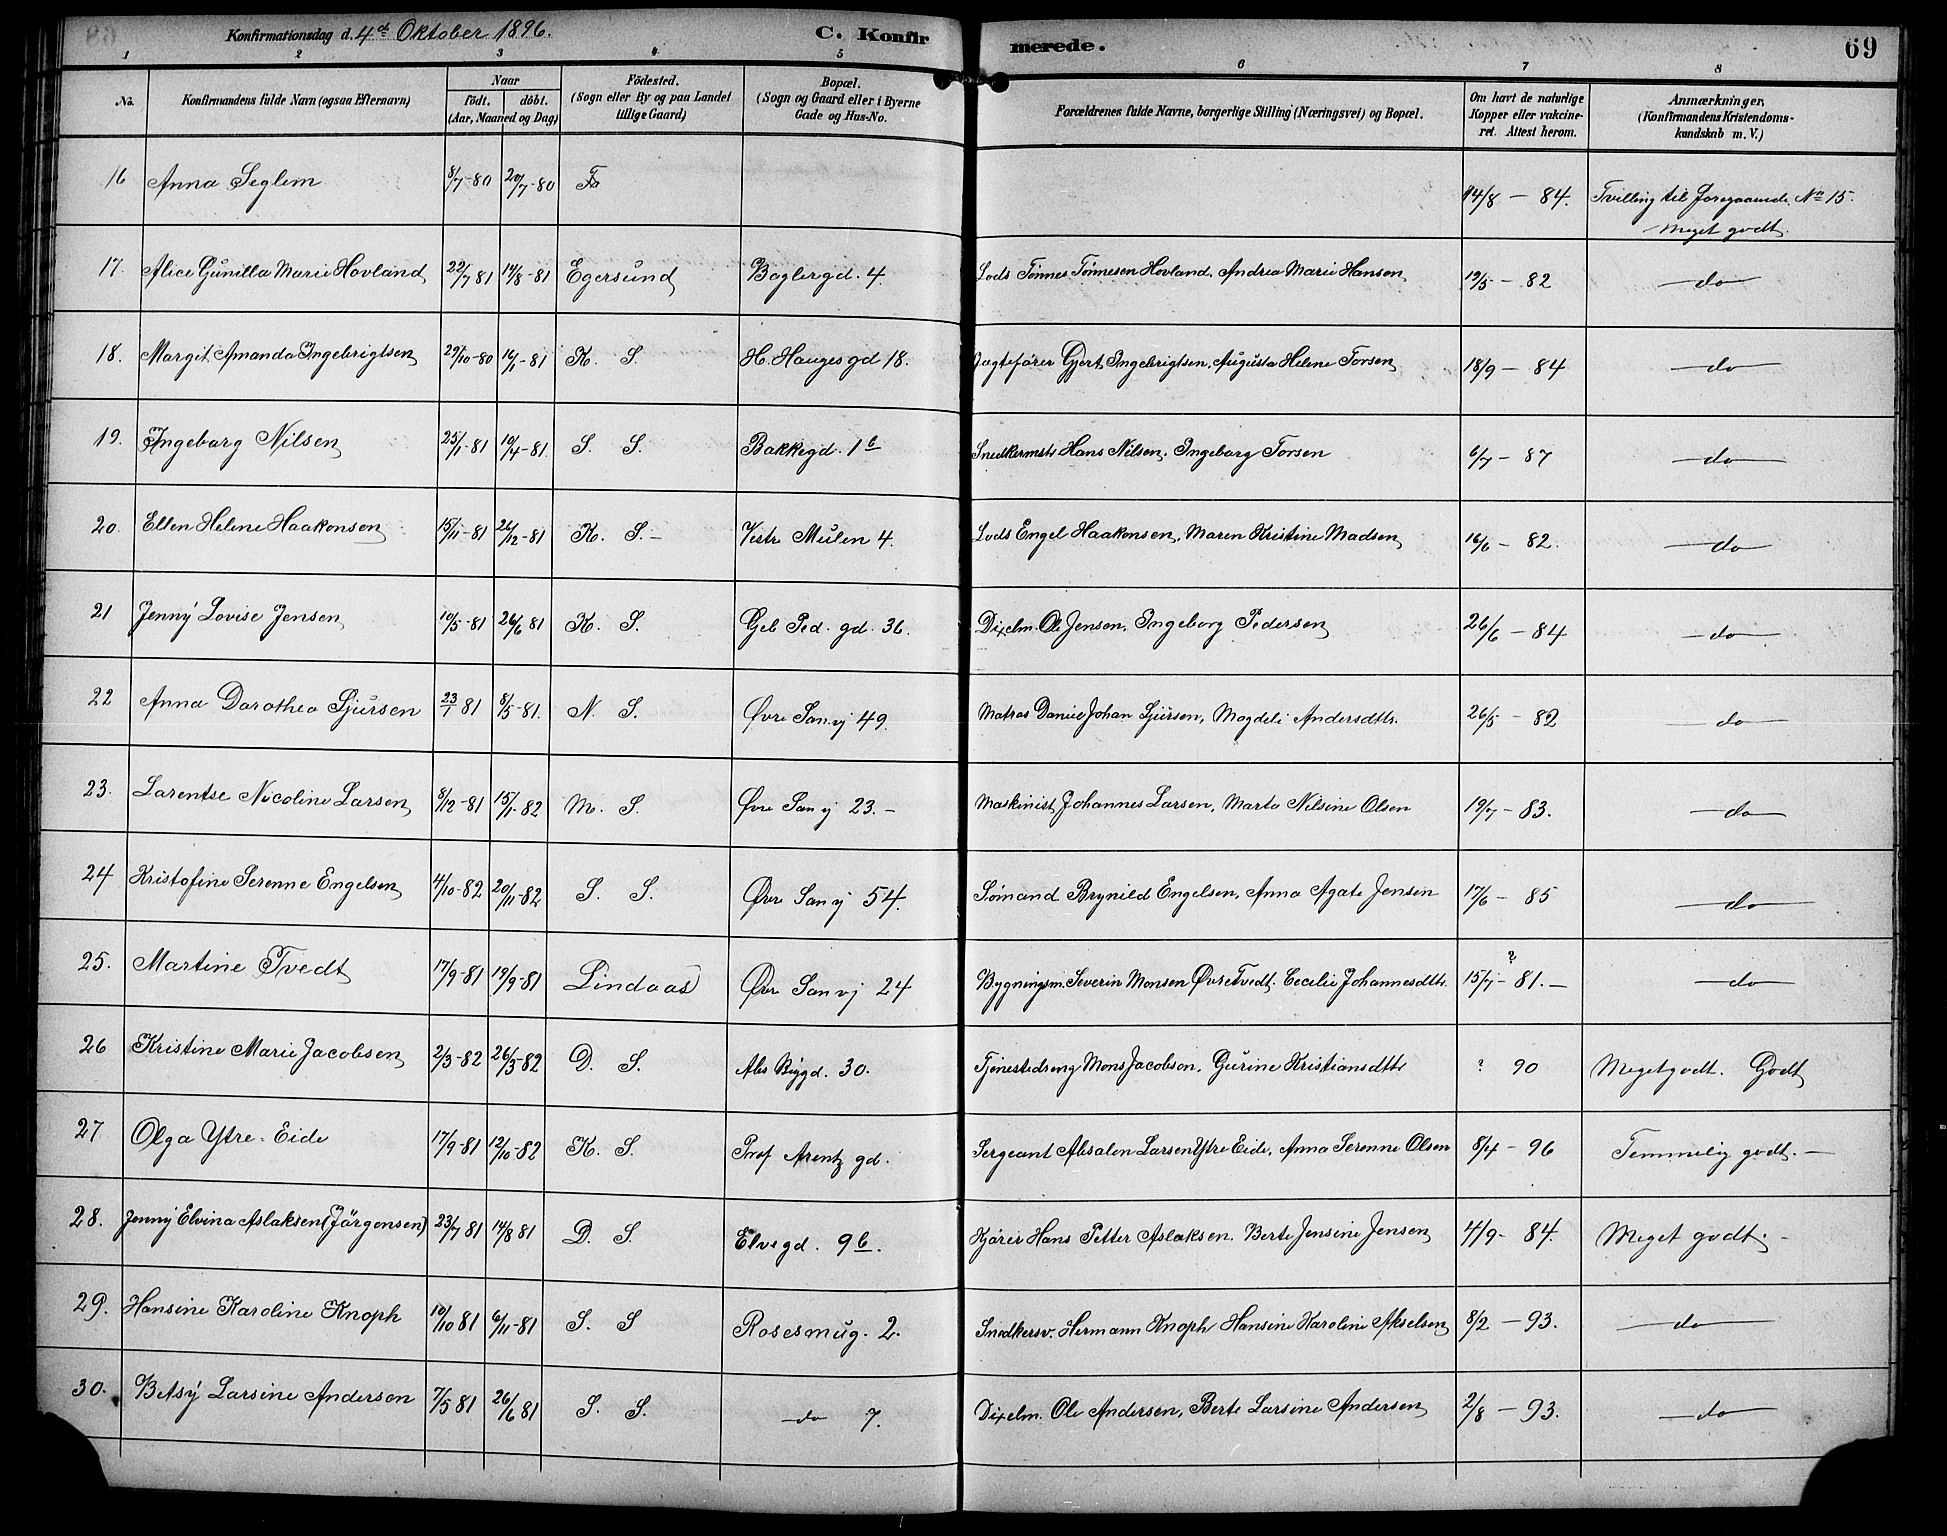 Konfirmationsdag d. 4de Oktober 1896. C. Konfir merede. 69
1 2 3 4 5 6 7 8
No. Konfirmandens fulde Navn (ogsaa Efternavn) Naar födt. döbt. (Aar, Maaned og Dag) Födested. (Sogn eller By og paa Landet tillige Gaard) Bopæl. (Sogn og Gaard eller i Byerne Gade og Hus-No. Forældrenes fulde Navne, borgerlige Stilling (Næringsvei) og Bopæl. Om havt de naturlige Kopper eller vakcineret. Attest herom. Anmærkninger. (Konfirmandens Kristendomskundskab m. V.)
16 Anna Seglem 8/7-80 20/7-80 14/8 - 84. Tvilling til foregaaende No 15.
Meget godt.
17. Alice Gunilla Marie Hovland 22/7 81 14/8-81 Egersund Baglergd. 4. Lods Tönnes Tönnesen Hovland. Andrea Marie Hansen 19/5 - 82 do
18. Margit Amanda Ingebrigtsen 29/10-80 16/1-81 K. S. H. Hauges gd 18. Jagtefører Gjert Ingebrigtsen, Augusta Helene Torsen 18/9 - 84 do
19. Ingeborg Nilsen 25/1-81 10/4-81. S. S. Bakkegd. 1b Snedkermstr Hans Nilsen. Ingeborg Torsen 6/7 - 87 do
20. Ellen Helene Haakonsen 15/11-81 26/12-81 K. S. - Vestr Mulen 4. Lods Engel Haakonsen, Maren Kristine Madsen 16/6 - 82. do
21 Jenny Lovise Jensen 10/5-81 26/6 81 K. S. Geb Ped. gd. 36. Dixelm. Ole Jensen, Ingeborg Pedersen 26/6 - 84 do
22 Anna Dorothea Sjursen 23/1 81 8/5-81. N. S. Øvre Sanvj 49. Matros Daniel Johan Sjursen, Magdeli Andersdttr. 26/5 - 82 do
23. Larentse Nicoline Larsen 8/12-81 15/1-82 M. S. Øvre Sanvj 23. - Maskinist Johannes Larsen, Marta Nilsine Olsen 19/7 - 83. do
24 Kristofine Serenne Engelsen 4/10-82 20/11-82 S. S. Øvr Sanvj 54. Sømand Brynild Engelsen, Anna Agate Jensen 17/6 - 85 do
25. Martine Tvedt 17/9-81 19/9-81 Lindaas Øvr Sanvj 24 Bygningsm. Severin Monsen Øvre Tvedt. Cecilie Johannesdttr. 15/7 - 81. - ? do
26 Kristine Marie Jacobsen 2/3-82 26/3-82 D. S. Abs Bygd. 30. Tjenestedreng Mons Jacobsen, Gurine Kristiansdttr ? 90 Meget godt. Godt
27 Olga Ytre-Eide 17/9-81 12/10-82 K. S. Prof Arentz gd. Sergeant Absalon Larsen Ytre Eide, Anna Serenne Olsen 8/4 - 96 Temmelig godt. -
28. Jenny Elvina Aslaksen (Jörgensen) 23/7 81 14/8 81 D. S. Elvegd. 9b. Kjører Hans Petter Aslaksen. Berte Jensine Jensen 4/9- 84. Meget godt. -
29. Hansine Karoline Knoph 10/10 81 6/11-81 S. S Rosesmug. 2. Snedkersv. Hermann Knoph Hansine Karoline Akselsen 8/2 - 93. do
30. Betsy Larsine Andersen 7/5 81 26/6 81 S. S. do 7. Dixelm. Ole Andersen, Berte Larsine Andersen 2/8 - 93. do